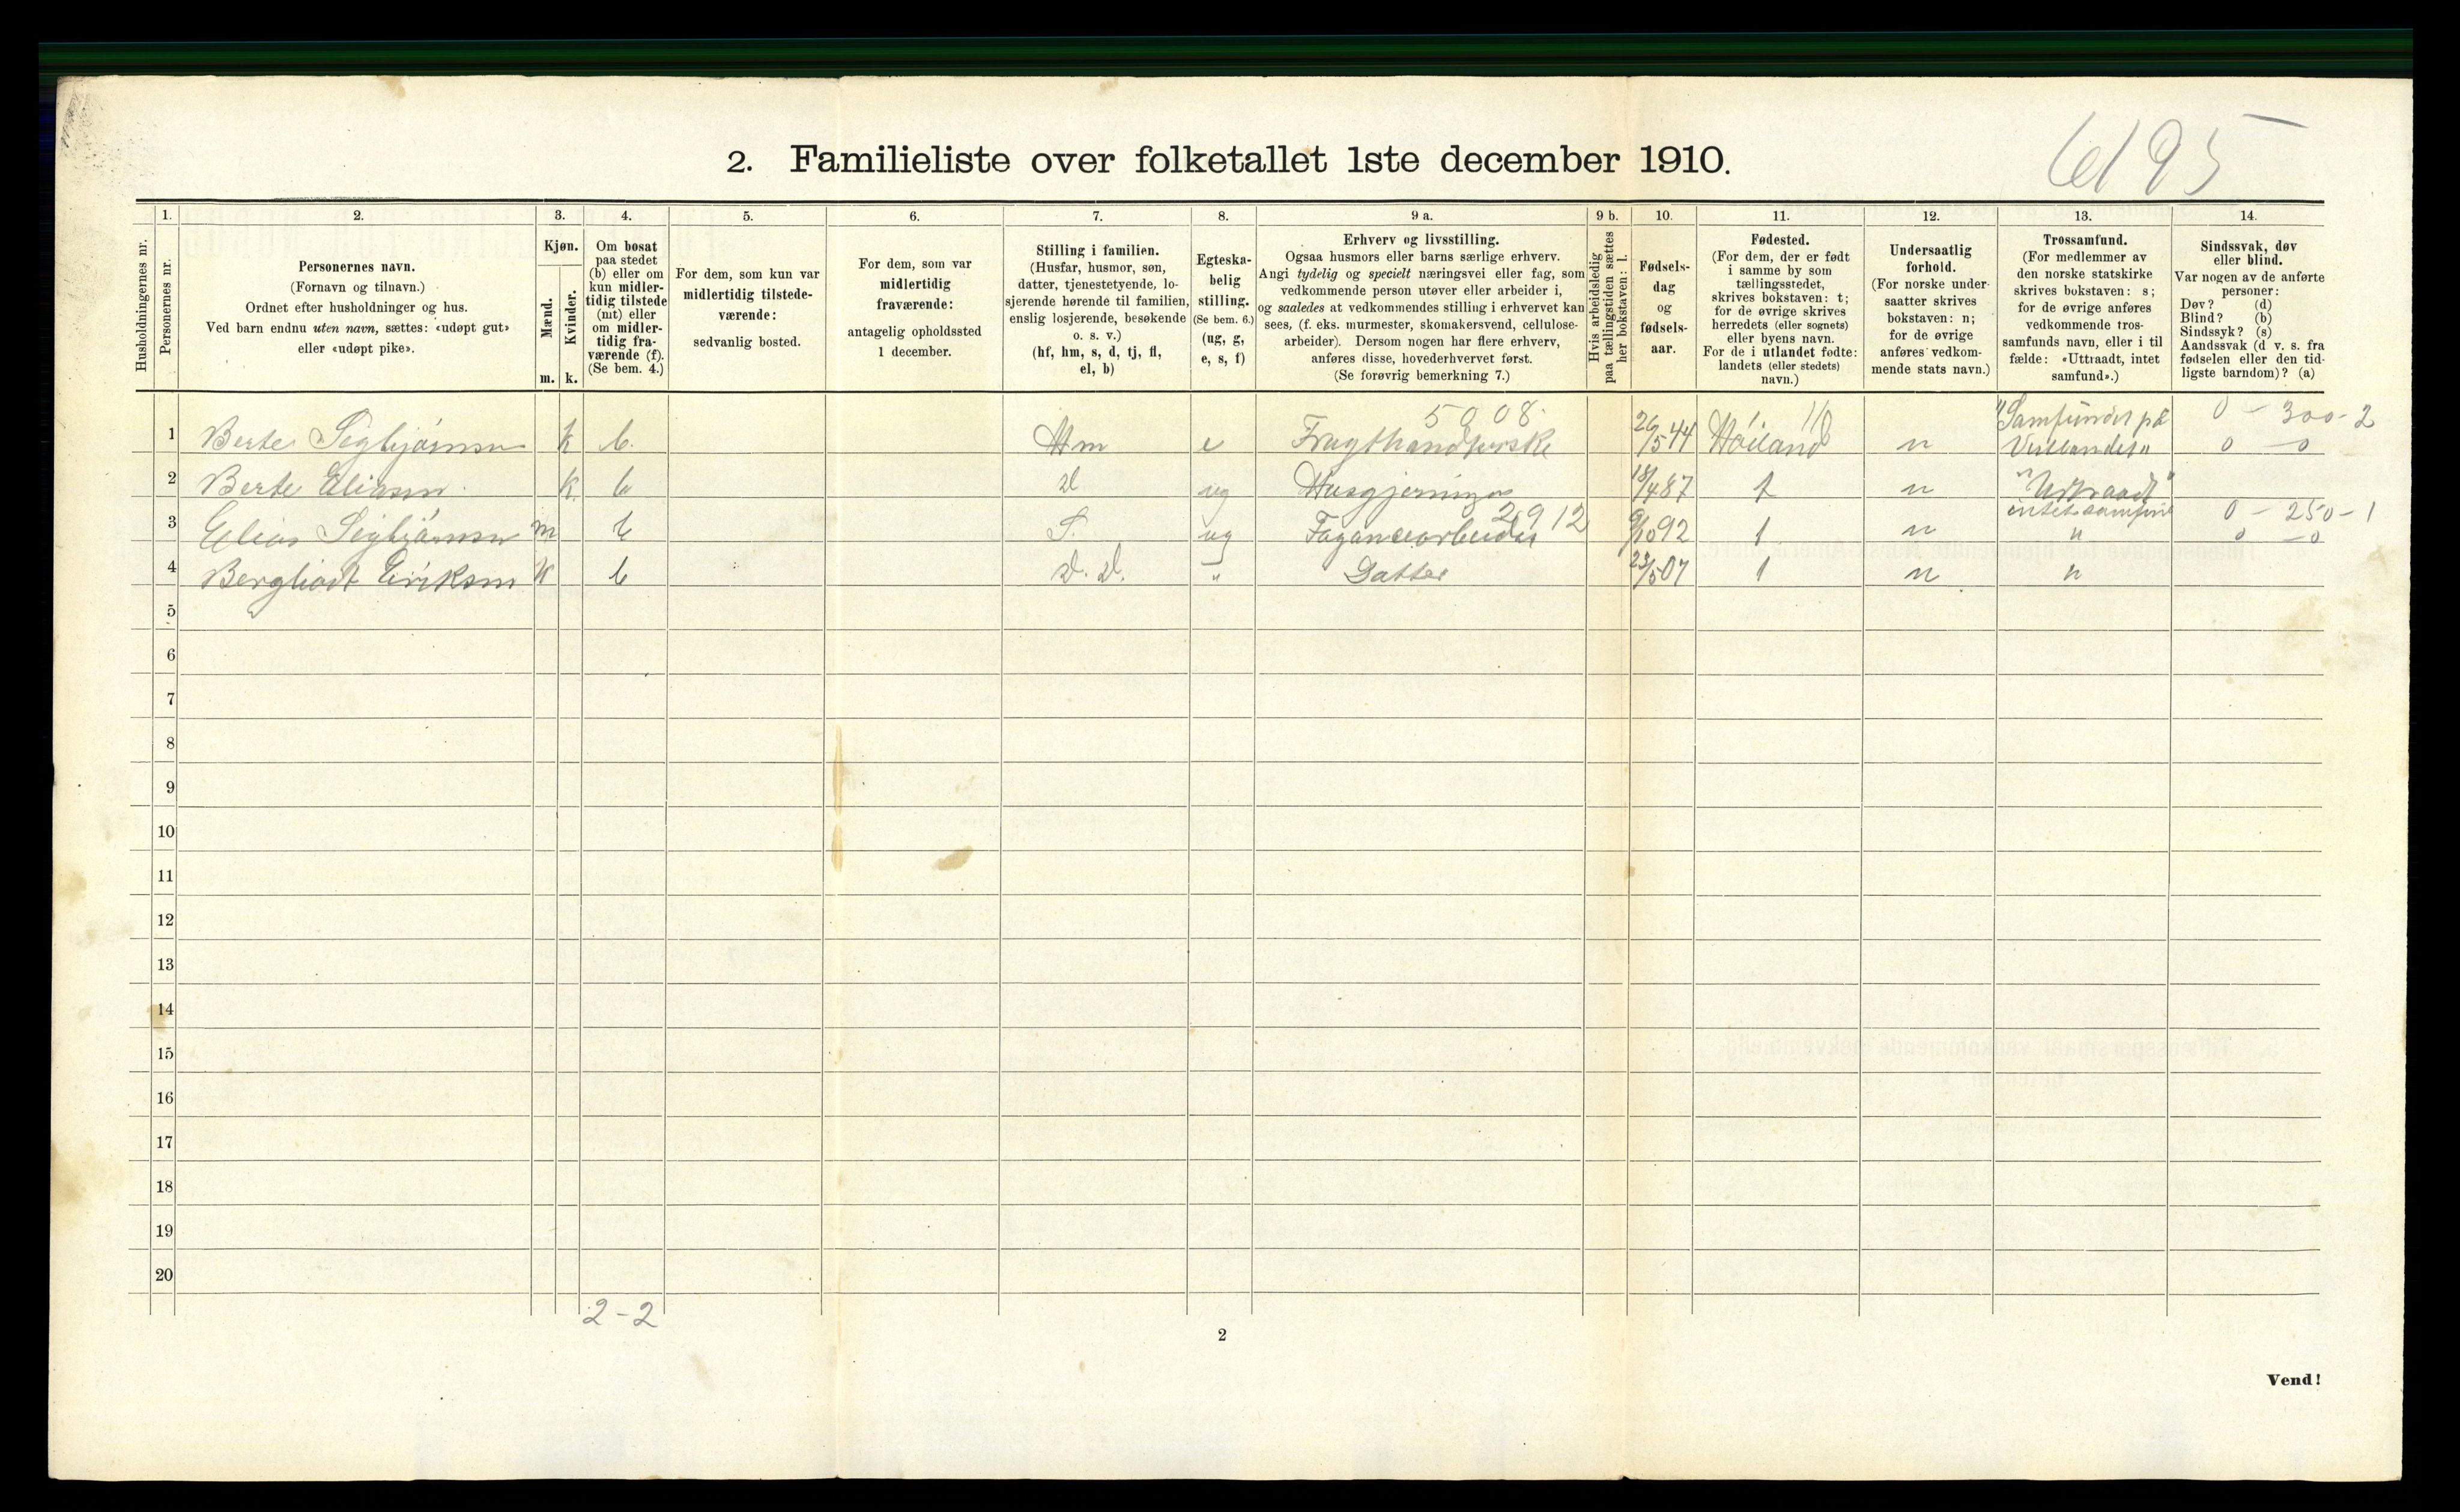 6195
2. Familieliste over folketallet 1ste december 1910.
Husholdningernes nr.
1. Personernes nr.
2. Personernes navn.
(Fornavn og tilnavn.)
Ordnet efter husholdninger og hus.
Ved barn endnu uten navn, sættes: «udøpt gut»
eller «udøpt pike».
3. Kjøn.
Mænd. m.
Kvinder. k.
4. Om bosat
paa stedet
(b) eller om
kun midler-
tidig tilstede
(mt) eller
om midler-
tidig fra-
værende (f).
(Se bem. 4.)
5. For dem, som kun var
midlertidig tilstede-
værende:
sedvanlig bosted.
6. For dem, som var
midlertidig
fraværende:
antagelig opholdssted
1 december.
7. Stilling i familien.
(Husfar, husmor, søn,
datter, tjenestetyende, lo-
sjerende hørende til familien,
enslig losjerende, besøkende
o. s. v.)
(hf, hm, s, d, tj, fl,
el, b)
8. Egteska-
belig
stilling.
(Se bem. 6.)
(ug, g,
e, s, f)
9 a. Erhverv og livsstilling.
Ogsaa husmors eller barns særlige erhverv.
Angi tydelig og specielt næringsvei eller fag, som
vedkommende person utøver eller arbeider i,
og saaledes at vedkommendes stilling i erhvervet kan
sees, (f. eks. murmester, skomakersvend, cellulose-
arbeider). Dersom nogen har flere erhverv,
anføres disse, hovederhvervet først.
(Se forøvrig bemerkning 7.)
9 b. Hvis arbeidsledig
paa tællingstiden sættes
her bokstaven: l.
10. Fødsels-
dag
og
fødsels-
aar.
11. Fødested.
(For dem, der er født
i samme by som
tællingsstedet,
skrives bokstaven: t;
for de øvrige skrives
herredets (eller sognets)
eller byens navn.
For de i utlandet fødte:
landets (eller stedets)
navn.)
12. Undersaatlig
forhold.
(For norske under-
saatter skrives
bokstaven: n;
for de øvrige
anføres vedkom-
mende stats navn.)
13. Trossamfund.
(For medlemmer av
den norske statskirke
skrives bokstaven: s;
for de øvrige anføres
vedkommende tros-
samfunds navn, eller i til
fælde: «Uttraadt, intet
samfund».)
14. Sindssvak, døv
eller blind.
Var nogen av de anførte
personer:
Døv? (d)
Blind? (b)
Sindssyk? (s)
Aandssvak (d v. s. fra
fødselen eller den tid-
ligste barndom)? (a)
5008. 110 "Samfundet på 0 - 300-2
1 Berte Sigbjørnsen k b. Hm e Frugthandlerske 26/5 44 Høiland n Vestlandet" 0 - 0
2 Berte Eliasen k b d ug Husgjerning 18/4 87 t n "Uttraadt"
2912 intet samfund 0 - 250-1
3 Elias Sigbjørnsen m b S. ug 9/10 92 t n " 0 - 0
4 Bergliodt Eriksen k b d. d. " Datter 23/5 07 t n "
5
6
7
8
9
10
11
12
13
14
15
16
17
18
19
20
2-2
2
Vend!